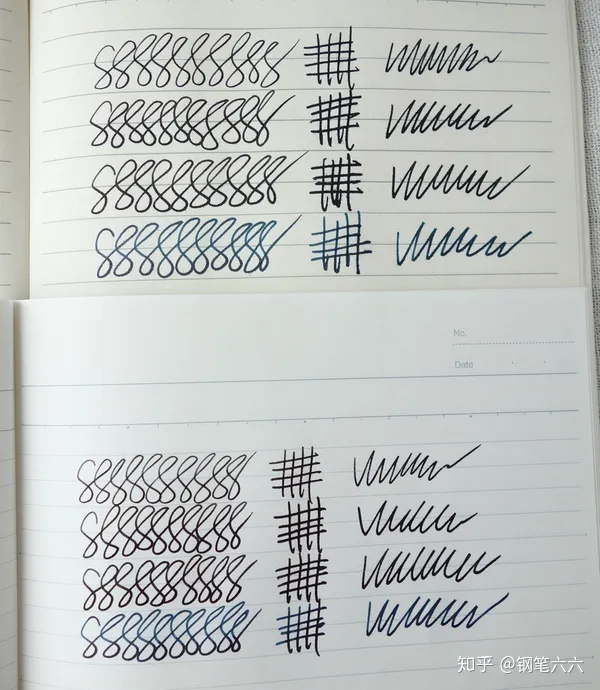 No.
Date
知乎 @钢笔六六